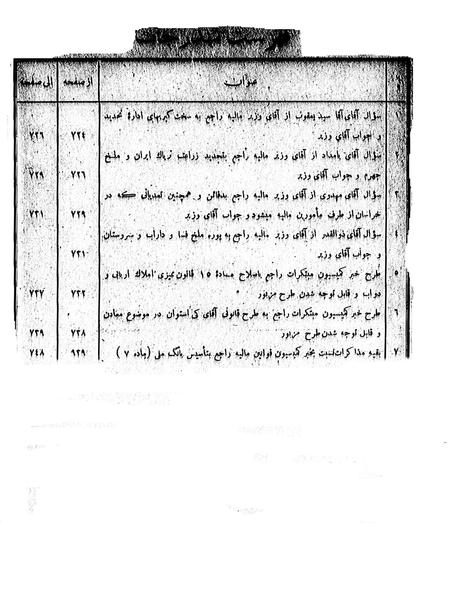 فهرست مندرجات
عنوان از صفحه الی صفحه
۱ سؤال آقای آقا سید یعقوب از آقای وزیر مالیه راجع به سخت گیریهای ادارهٔ تحدید
و جواب آقای وزیر ۷۲۴ ۷۲۶
۲ سؤال آقای بامداد از آقای وزیر مالیه راجع بتحدید زراعت تریاک ایران و ملخ
جهرم و جواب آقای وزیر ۷۲۶ ۷۲۹
۳ سؤال آقای مهدوی از آقای وزیر مالیه راجع بدخالن و همچنین تعدیاتی که در
خراسان از طرف مأمورین مالیه میشود و جواب آقای وزیر ۷۲۹ ۷۳۱
۴ سؤال آقای ذوالقدر از آقای وزیر مالیه راجع به پوره ملخ فسا و داراب و سروستان
و جواب آقای وزیر ۷۳۱
۵ طرح خبر کمیسیون مبتکرات راجع باصلاح مادهٔ ۱۵ قانون ممیزی املاک اربابی و
دواب و قابل توجه شدن طرح مزبور ۷۳۲ ۷۳۷
۶ طرح خبر کمیسیون مبتکرات راجع به طرح قانونی آقای کی استوان در موضوع معادن
و قابل توجه شدن طرح مزبور ۷۳۸ ۷۳۹
۷ بقیه مذاکرات نسبت بخبر کمیسیون قوانین مالیه راجع بتأسیس بانک ملی (ماده ۷) ۹۳۹ ۷۴۸